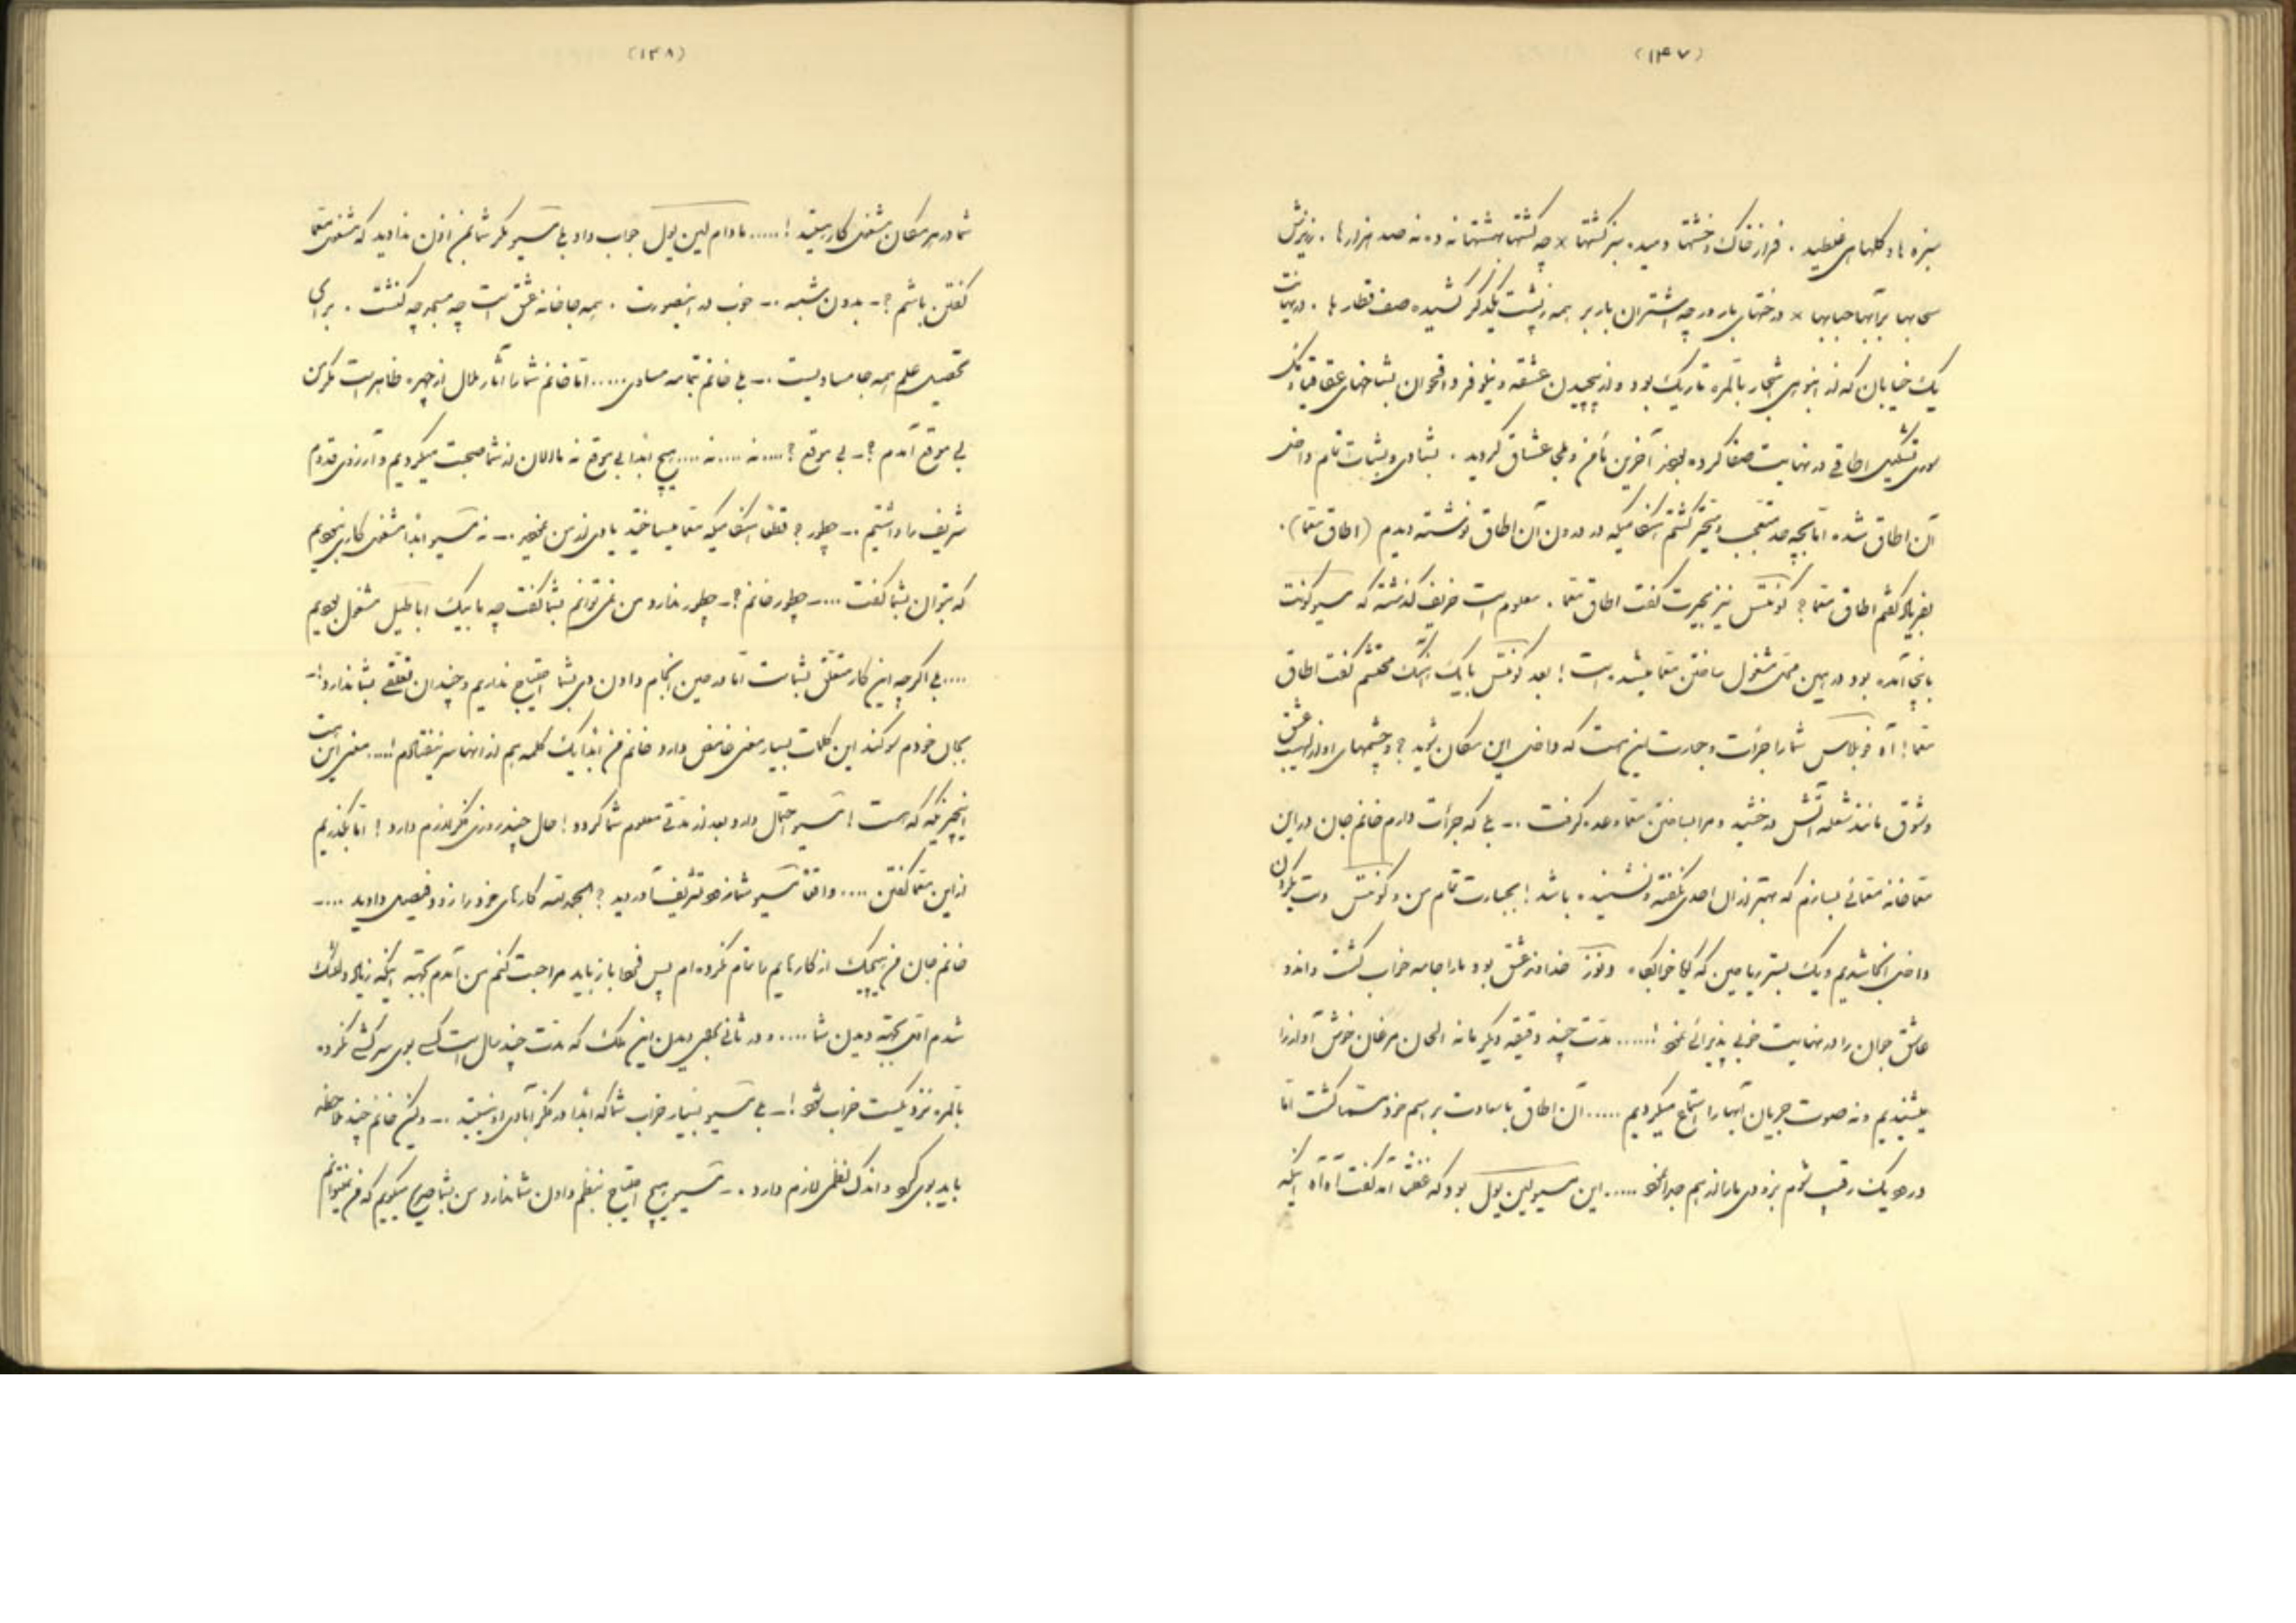 (۱۴۷)
سبزه ها و گلهای غلطید . فراز خاک و خشتها دمیده سبز گشتها × چه گشتها بهشتها نه ده نه صد هزارها . ز ریزش
سحابها بر آبها حبابها × درختهای بارور چه اشتران باربر همه ز پشت یکدگر کشیده صف قطارها . در نهایت
یک خیابان که از انبوهی اشجار بالمره تاریک بود و از پیچیدن عشقه و نیلوفر و اقحوان بشاخهای
تشکیل اطاقی در نهایت صفا کرده بود آخرین مأمن و ملجأ عشاق گردید . بشادی و بشاشت تمام داخل
آن اطاق شده اما بچه حد متعجب و متحیر گشتم هنگامیکه در درون آن اطاق نوشته دیدم (اطاق معما) .
بفریاد گفتم اطاق معما ؟ کونتس نیز بحیرت گفت اطاق معما . معلوم است حریف گذشته که مسیو کونت
باینجا آمده بود در همین محل مشغول ساختن معما میشده است ! بعد کونتس با یک آهنگ محتشم گفت اطاق
معما ! آه دوبلاس شما را جرأت و جسارت این هست که داخل این مکان شوید ؟ و چشمهای او از لهیب عشق
و شوق مانند شعله آتش درخشید و مرا بساختن معما وعده گرفت .- بلی که جرأت دارم خانم جان در این
معماخانه معمائی بسازم که بهتر از آن احدی نگفته و نشنیده باشد ! بجسارت تمام من و کونتس دست یکدیگر
داخل آنجا شدیم و یک بستر ریاحین که گویا خوابگاه ونوز خداوند عشق بود ما را جامه خواب گشت و اندو
عاشق جوان را در نهایت خوبی پذیرائی نمود !...... مدت چند دقیقه دیگر ما نه الحان مرغان خوش آواز را
میشنیدیم و نه صوت جریان آبها را استماع میکردیم ..... آن اطاق با سعادت بر اسم خود مسما گشت اما
در هر یک رقیب شوم بزودی ما را از هم جدا نمود ..... این مسیو لین پول بود که گفت آه آه اینکه
(۱۴۸)
شما در هر مکان مشغول کار هستید !..... مادام لین پول جواب داد بلی مسیو مگر شما بمن اذن ندادید که مشغول معما
گفتن باشم ؟ - بدون شبهه .- خوب در اینصورت . همه جا خانه عشق است چه مسجد چه کنشت . برای
تحصیل علم همه جا مساویست .- بلی خانم بتمامه مساوی ..... اما خانم شما را آثار ملال از چهره ظاهر است مگر من
بی موقع آمدم ؟ - بی موقع ؟.... نه .... نه .... هیچ ابدا بی موقع نه ما الان از شما صحبت میکردیم و آرزوی قدوم
شریف را داشتیم .- چطور ؟ فقط هنگامیکه معما میساختید یادی از من نمودید .- نه مسیو ابدا مشغول کاری نبودیم
که بتوان بشما گفت ...- چطور خانم ؟ - چطور ندارد من نمی توانم بشما گفت چه ما بیک اباطیل مشغول بودیم
.... بلی اگر چه این کار متعلق بشماست اما در حین انجام دادن وی بشما احتیاج نداریم و چندان تعلقی بشما ندارد !-
بجان خودم سوگند این کلمات بسیار معنی غامض دارد خانم من ابدا یک کلمه هم از آنها سر نیفتادم !.... معنی این است
اینجز که که هست ! مسیو احتمال دارد بعد از مدتی معلوم شما گردد ! حال چند روزی فکر لازم دارد ! اما بگذریم
از این معما گفتن .... واقعا مسیو شما زود تشریف آوردید ؟ الحمد لله کارهای خود را زود فیصل دادید ....-
خانم جان من هیچیک از کارهایم را تمام نکرده ام پس فردا باز باید مراجعت کنم من آمدم بجهته اینکه زیاد دلتنگ
شدم اولا بجهته دیدن شما .... و در ثانی بجهت دیدن این ملک که مدت چند سال است کسی بوی سرکشی نکرده
بالمره نزدیکست خراب شود !- بلی مسیو بسیار خراب شما که ابدا در فکر آبادی او نیستید .- ولیکن خانم چند ملاحظه
باید بوی کرد و اندک نظمی لازم دارد .- مسیو هیچ احتیاج بنظم دادن شما ندارد من بشما صریح میگویم که من نمیتوانم